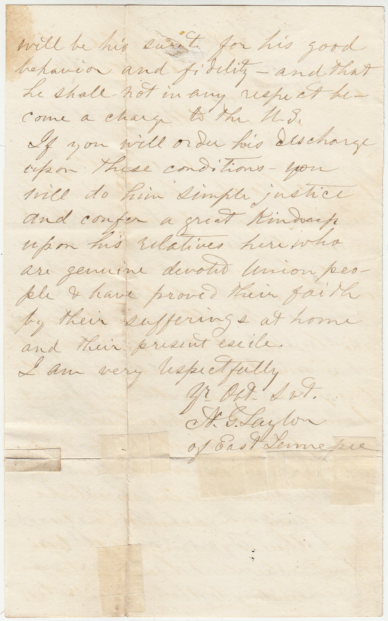 will be his surety for his good
behavior and fidelity – and that
he shall not in any respect be-
come a charge to the U.S.
If you will order his discharge
upon these conditions – you
will do him simple justice
and confer a great kindness
upon his relatives here, who
are genuine devoted Union peo-
ple & have proved their faith
by their sufferings at home
and their present exile.
I am very respectfully
Yr Obt. Svt.
N. G. Taylor
of East Tennessee